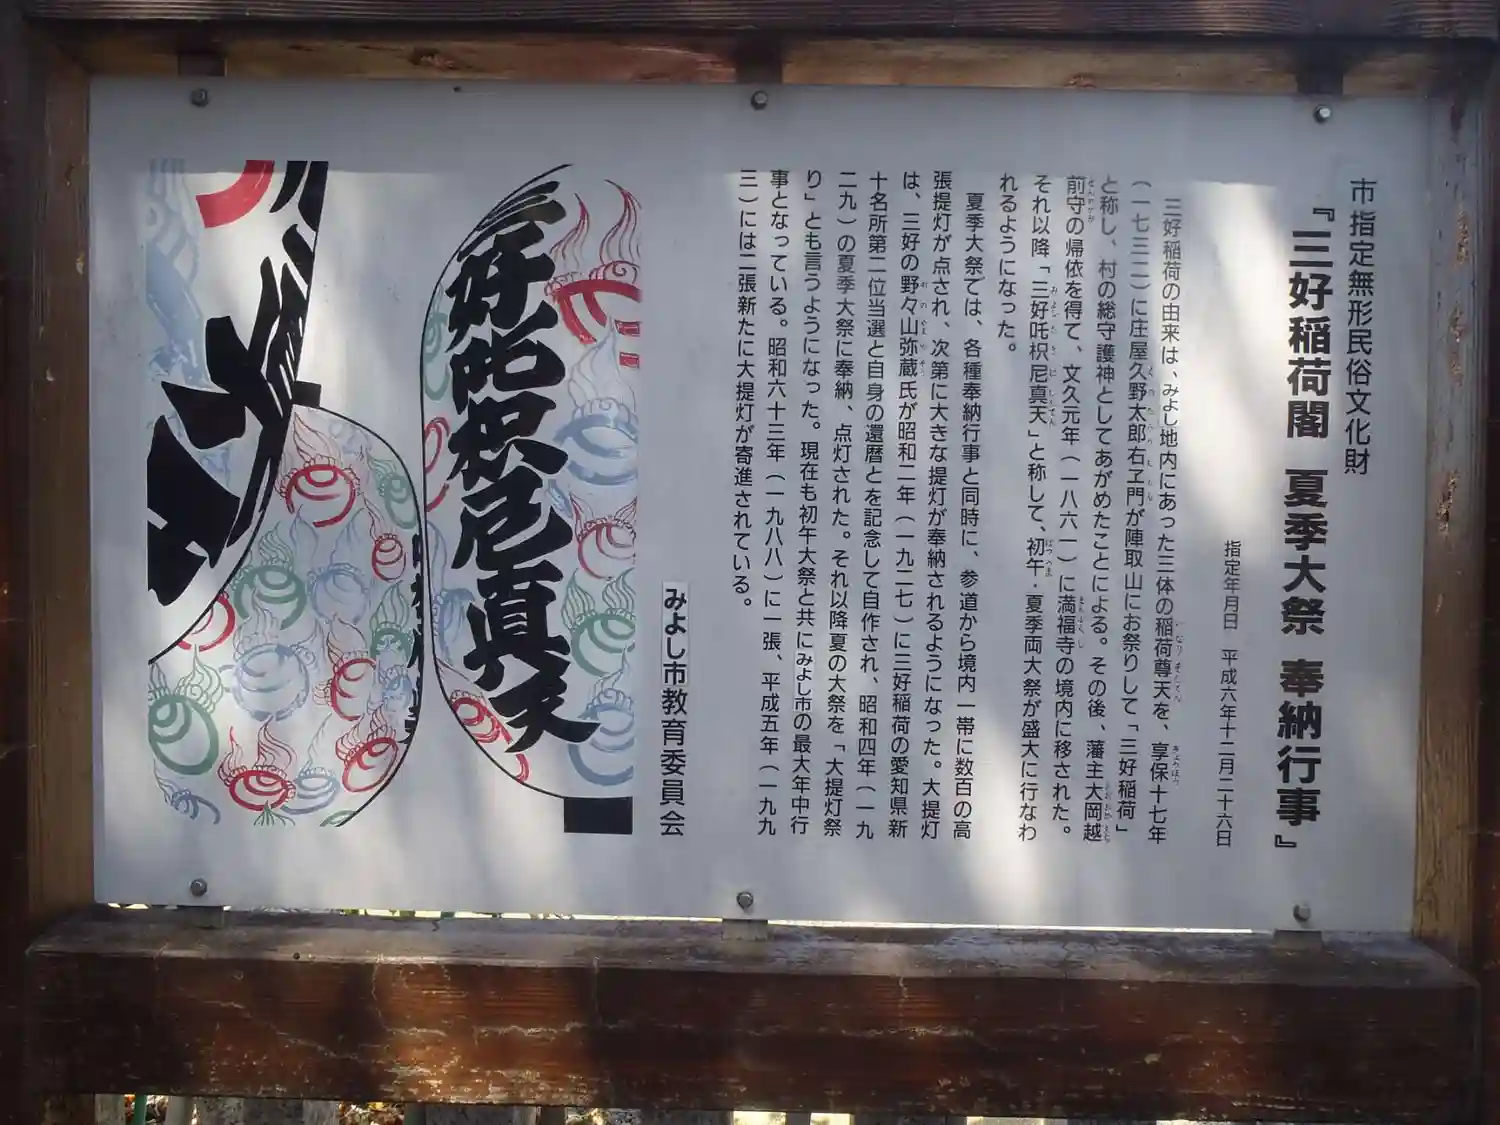 市指定無形民俗文化財
『三好稲荷閣 夏季大祭 奉納行事』
指定年月日 平成六年十二月二十六日
三好稲荷の由来は、みよし地内にあった三体の稲荷尊天を、享保十七年
(一七三二)に庄屋久野太郎右ヱ門が陣取山にお祭りして「三好稲荷」
と称し、村の総守護神としてあがめたことによる。その後、藩主大岡越
前守の帰依を得て、文久元年(一八六一)に満福寺の境内に移された。
それ以降「三好吒枳尼真天」と称して、初午・夏季両大祭が盛大に行なわ
れるようになった。
夏季大祭では、各種奉納行事と同時に、参道から境内一帯に数百の高
張提灯が点され、次第に大きな提灯が奉納されるようになった。大提灯
は、三好の野々山弥蔵氏が昭和二年(一九二七)に三好稲荷の愛知県新
十名所第二位当選と自身の還暦とを記念して自作され、昭和四年(一九
二九)の夏季大祭に奉納、点灯された。それ以降夏の大祭を「大提灯祭
り」とも言うようになった。現在も初午大祭と共にみよし市の最大年中行
事となっている。昭和六十三年(一九八八)に一張、平成五年(一九九
三)には二張新たに大提灯が寄進されている。
みよし市教育委員会
三好吒枳尼真天